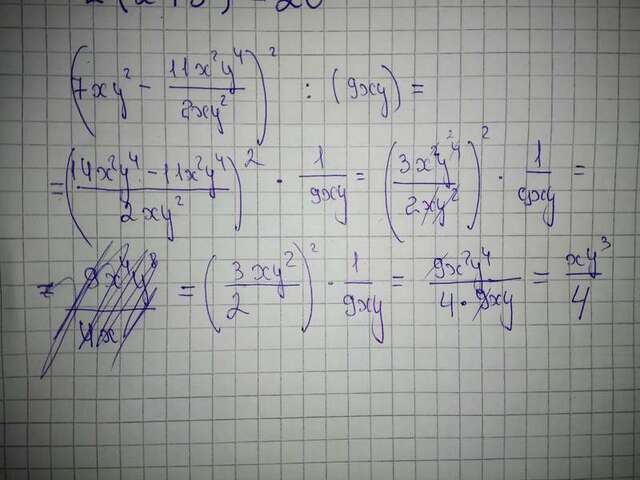 (7xy² - 11x²y⁴/2xy²)² : (9xy) =
= (14x²y⁴ - 11x²y⁴/2xy²)² · 1/9xy = (3x²y⁴/2xy²)² · 1/9xy =
= (3xy²/2)² · 1/9xy = 9x²y⁴/4·9xy = xy³/4